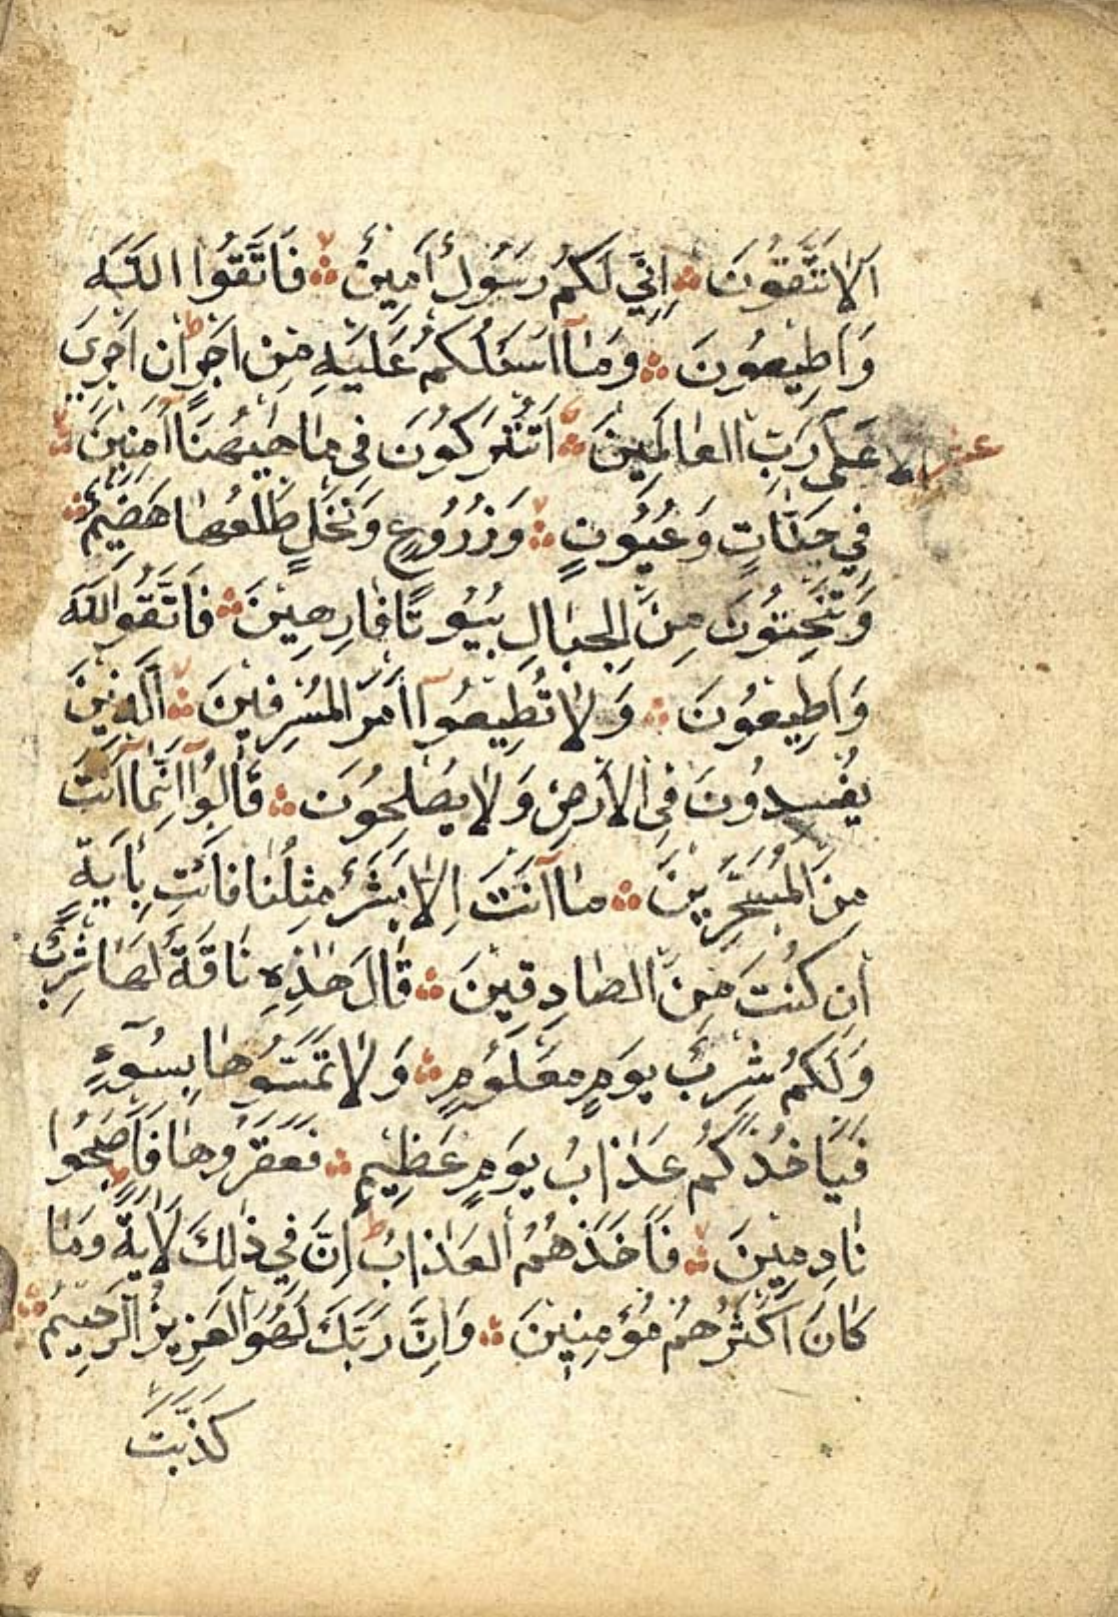 اَلَا تَتَّقُونَ ۞ اِنِّي لَكُمْ رَسُولٌ اَمِينٌ ۞ فَاتَّقُوا اللّٰهَ
وَاَطِيعُونِ ۞ وَمَٓا اَسْـَٔلُكُمْ عَلَيْهِ مِنْ اَجْرٍ ط اِنْ اَجْرِيَ
اِلَّا عَلٰى رَبِّ الْعَالَمِينَ ۞ اَتُتْرَكُونَ فِي مَا هٰيهُنَٓا اٰمِنِينَ ۞
عشر
فِي جَنَّاتٍ وَعُيُونٍ ۞ وَزُرُوعٍ وَنَخْلٍ طَلْعُهَا هَضِيمٌ ۞
وَتَنْحِتُونَ مِنَ الْجِبَالِ بُيُوتًا فَارِهِينَ ۞ فَاتَّقُوا اللّٰهَ
وَاَطِيعُونِ ۞ وَلَا تُطِيعُٓوا اَمْرَ الْمُسْرِفِينَ ۞ اَلَّذِينَ
يُفْسِدُونَ فِي الْاَرْضِ وَلَا يُصْلِحُونَ ۞ قَالُٓوا اِنَّمَٓا اَنْتَ
مِنَ الْمُسَحَّرِينَ ۞ مَٓا اَنْتَ اِلَّا بَشَرٌ مِثْلُنَا فَأْتِ بِاٰيَةٍ
اِنْ كُنْتَ مِنَ الصَّادِقِينَ ۞ قَالَ هٰذِهِ نَاقَةٌ لَهَا شِرْبٌ
وَلَكُمْ شِرْبُ يَوْمٍ مَعْلُومٍ ۞ وَلَا تَمَسُّوهَا بِسُٓوءٍ
فَيَأْخُذَكُمْ عَذَابُ يَوْمٍ عَظِيمٍ ۞ فَعَقَرُوهَا فَاَصْبَحُوا
نَادِمِينَ ۞ فَاَخَذَهُمُ الْعَذَابُ ط اِنَّ فِي ذٰلِكَ لَاٰيَةً وَمَا
كَانَ اَكْثَرُهُمْ مُؤْمِنِينَ ۞ وَاِنَّ رَبَّكَ لَهُوَ الْعَزِيزُ الرَّحِيمُ ۞
كَذَّبَتْ